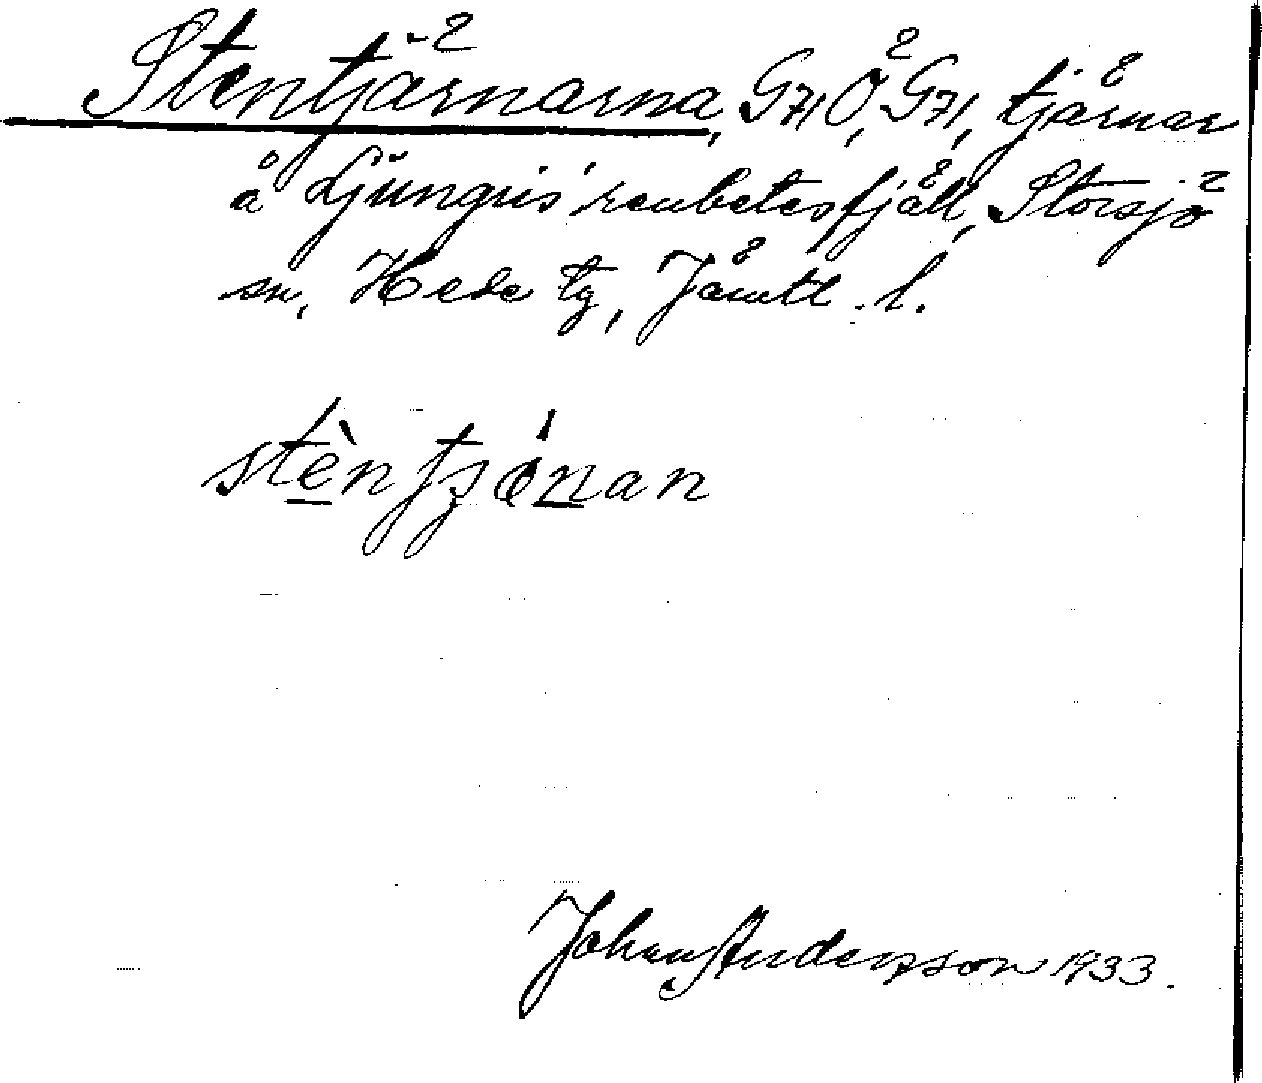 Stentjärnarna, G71, Ö, G71, tjärnar
å Ljungris' renbetesfjäll, Storsjö
sn, Hede tg, Jämtl. l.
stèntjźónan
Johan Andersson 1933.